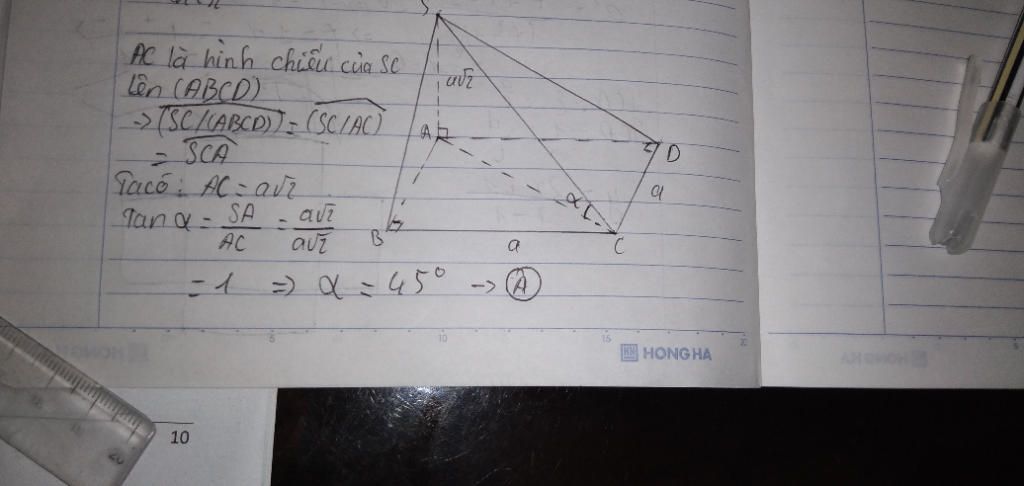 AC là hình chiếu của SC
lên (ABCD)
→ (SC/(ABCD)) = (SC/AC)
= SCA
Ta có: AC = a√2
Tan α = SA/AC = a√2/a√2
= 1 ⇒ α = 45° → A
S
a√2
A
D
α
a
B
C
a
5
10
15
20
HONG HA
10
20